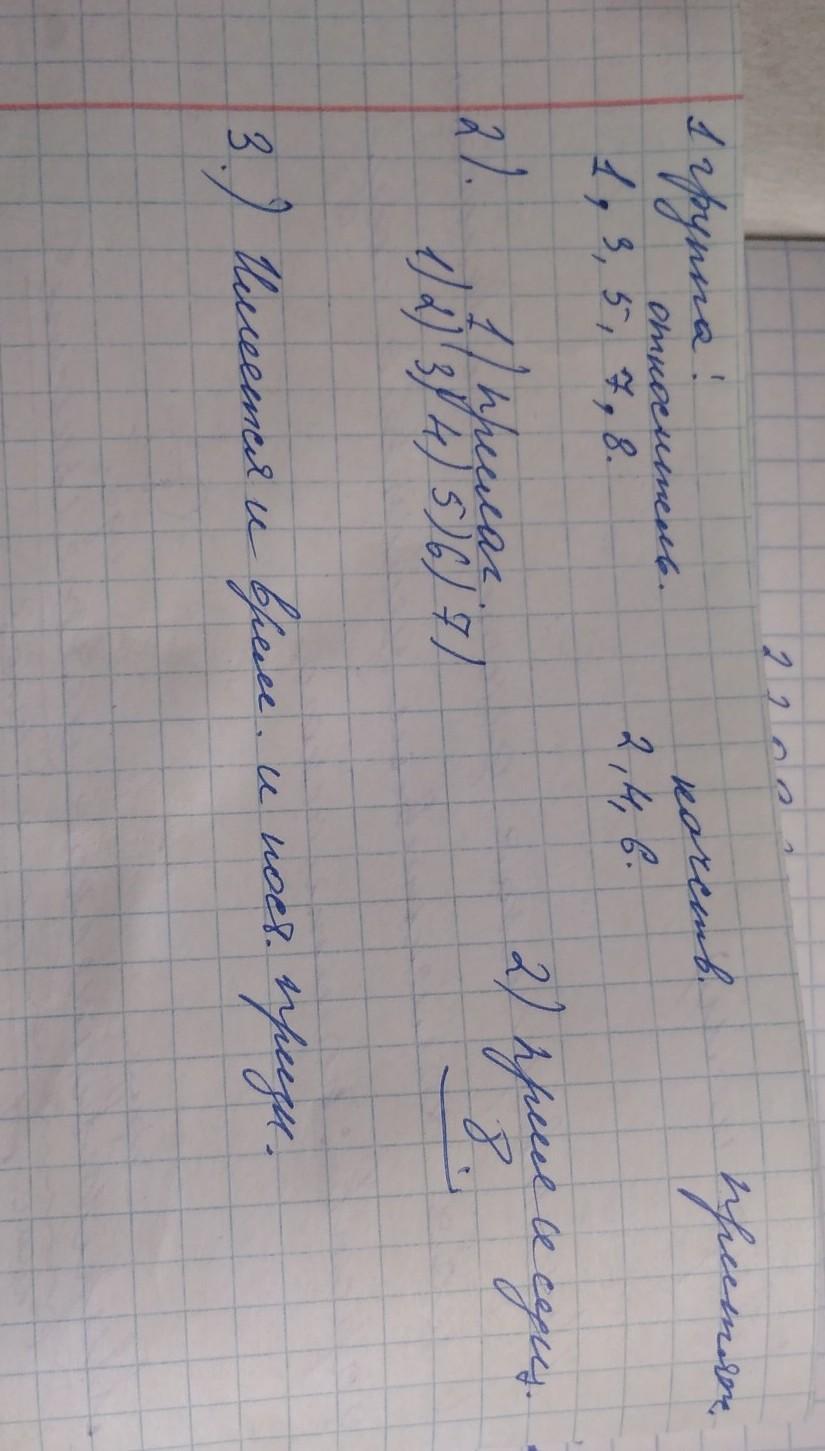 1 группа: относитель. качеств. притяж.
1, 3, 5, 7, 8. 2, 4, 6.
2). 1) прилаг. 2)
1) 2) 3) 4) 5) 6) 7) 8
3.) Имеется и врем. и пост. призн.